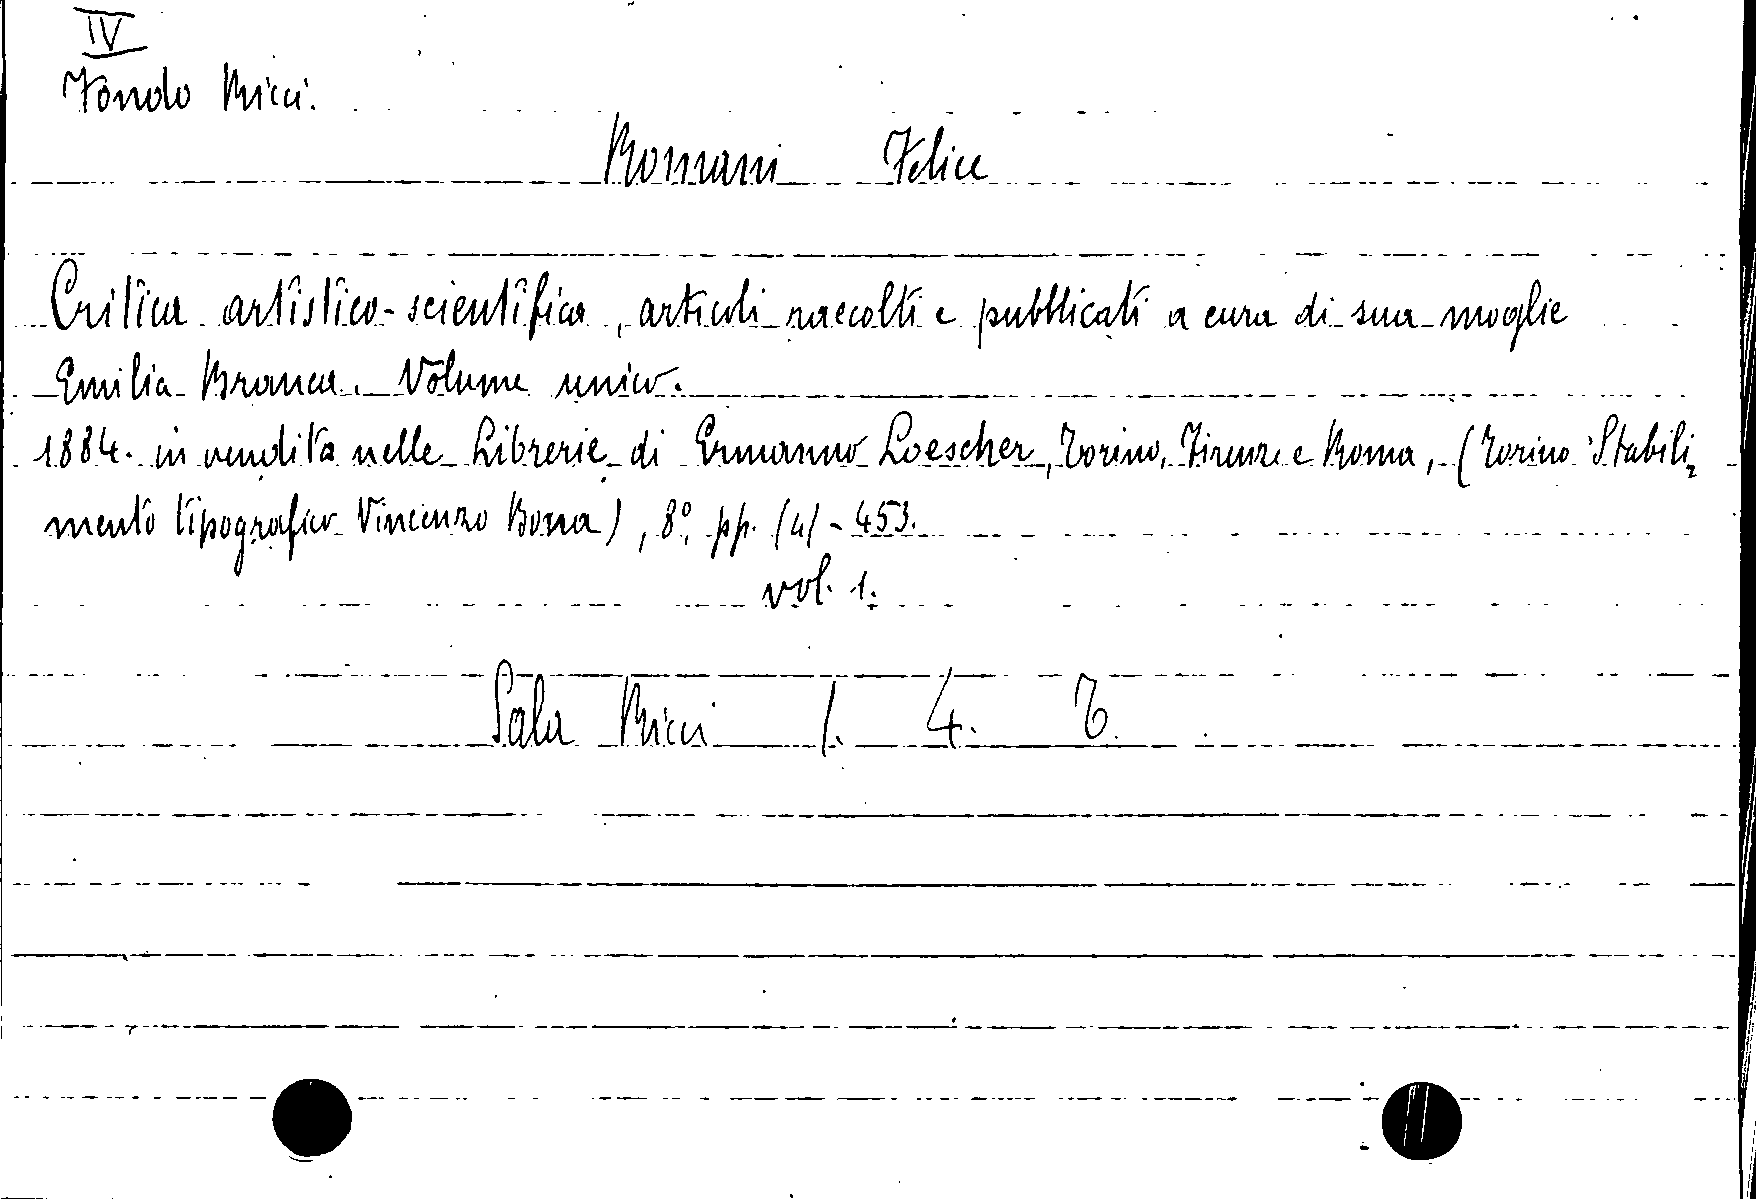 IV
Fondo Ricci.
Romani Felice
Critica artistico-scientifica, articoli raccolti e pubblicati a cura di sua moglie
Emilia Branca. Volume unico.
1884. in vendita nelle Librerie di Ermanno Loescher, Torino, Firenze e Roma, (Torino Stabili=
mento tipografico Vincenzo Bona), 8°, pp. (4) - 453.
vol. 1.
Sala Ricci 1. 4.